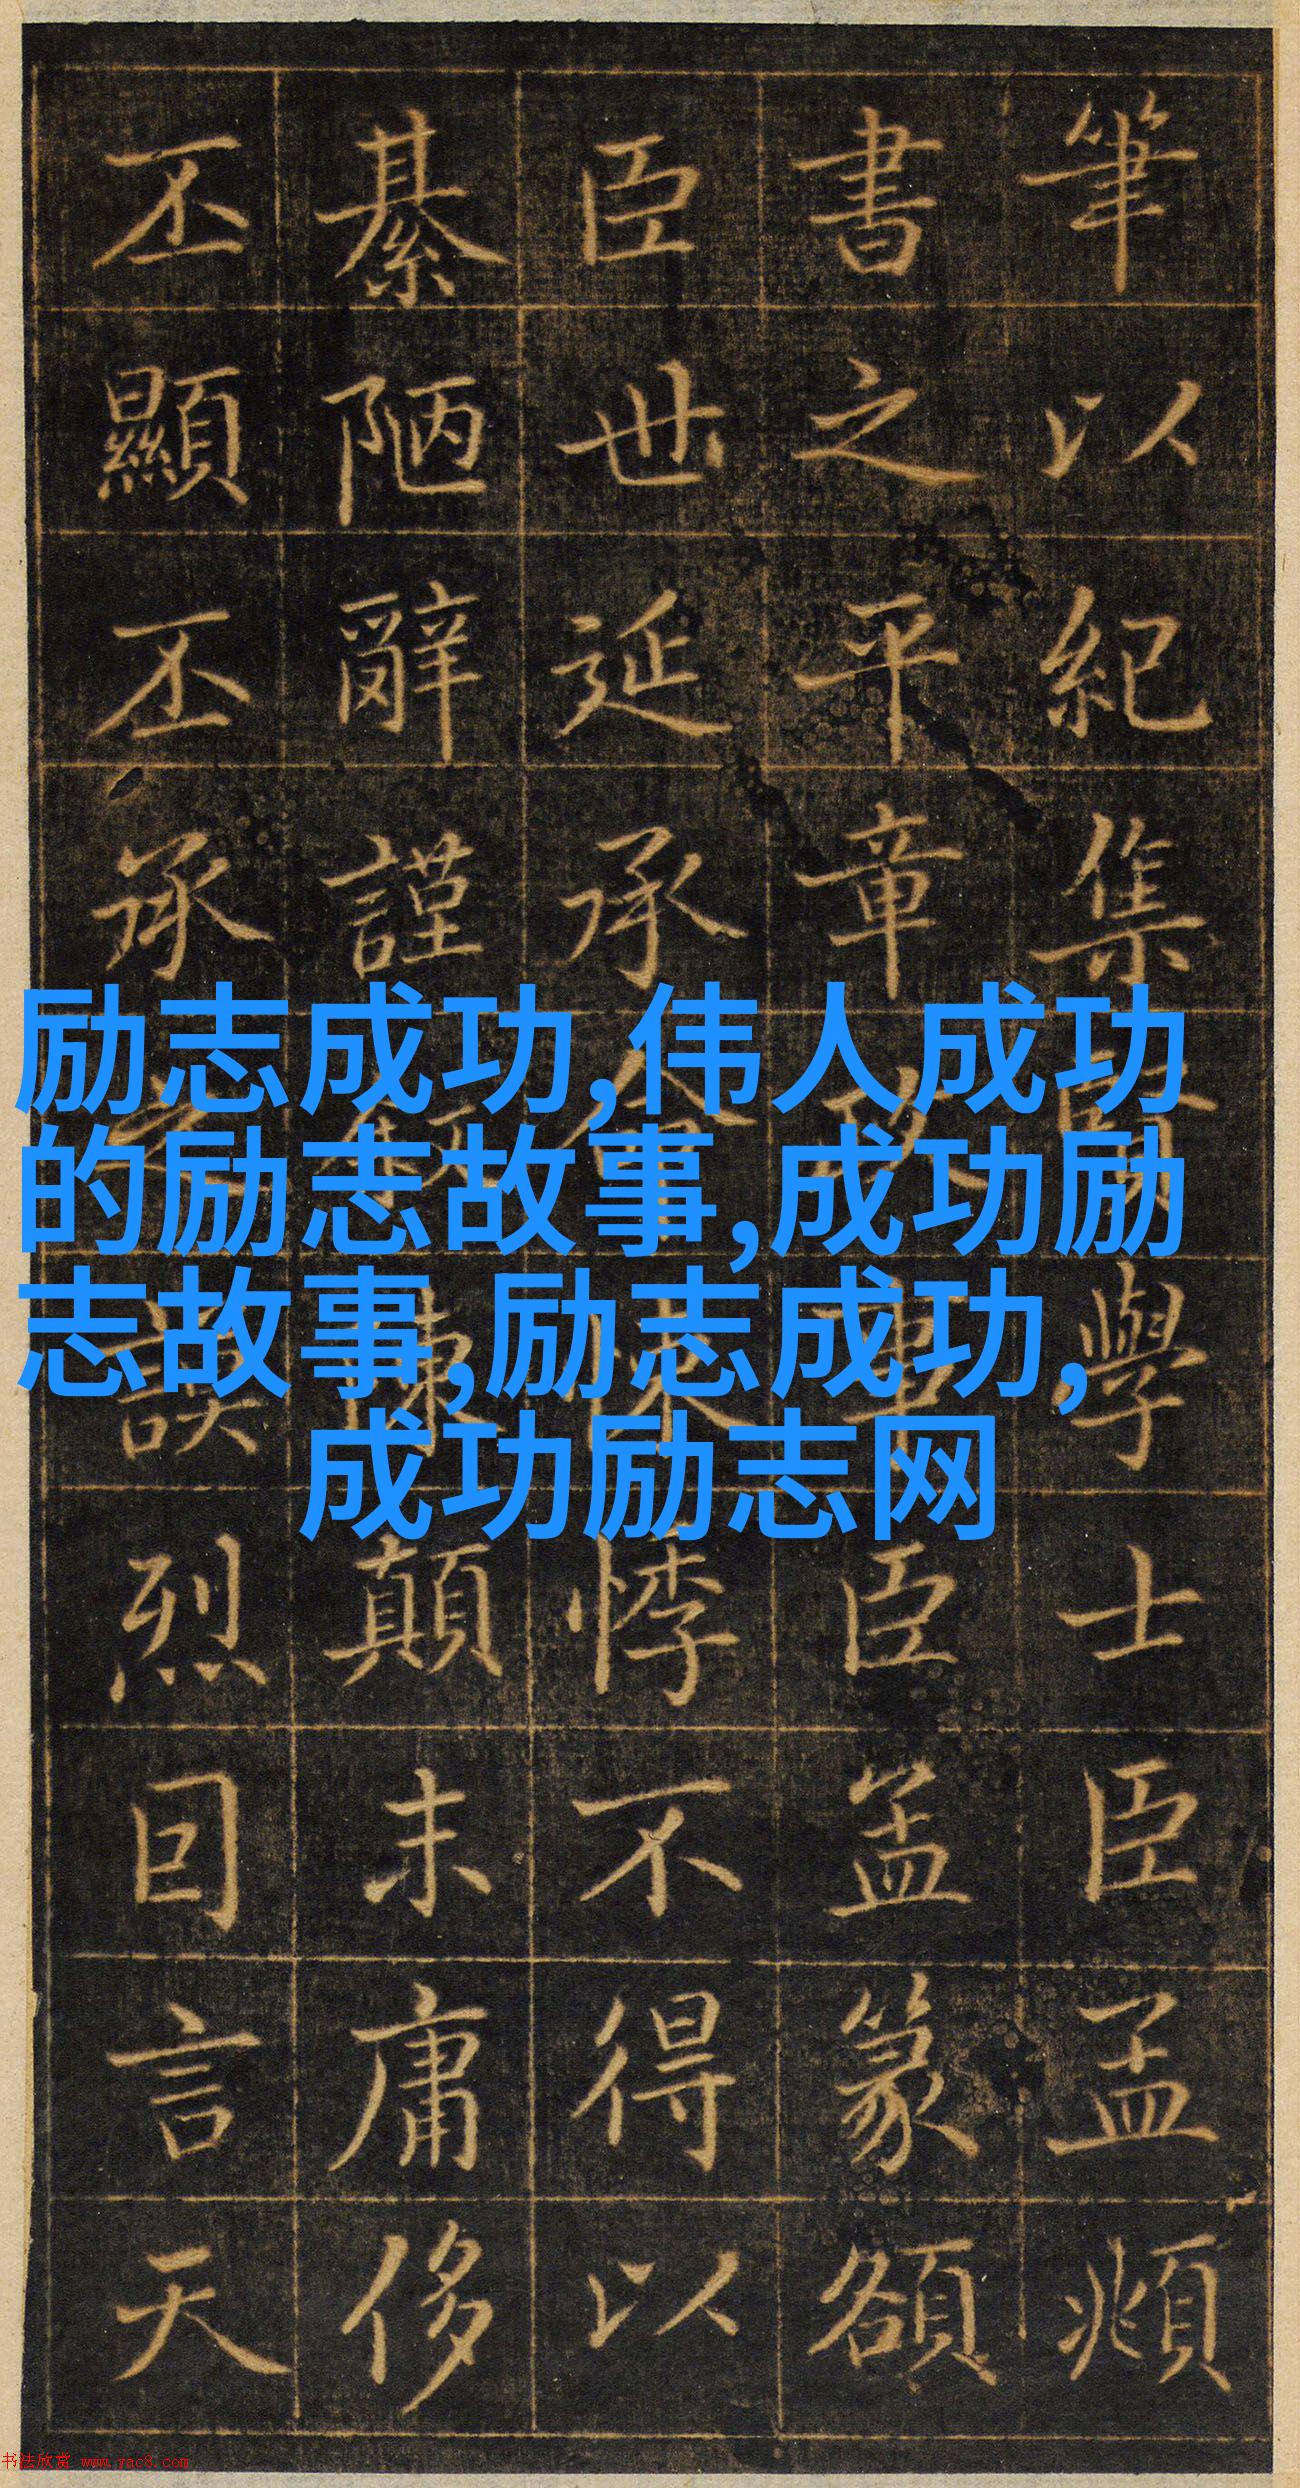 筆以紀集賢學士臣孟頫
書之平章政事臣篆額
臣世延承命悸不得以
綦陋辭謹顛末庸侈
丕顯丕承之謨烈囙言天
励志成功,伟人成功
的励志故事,成功励
志故事,励志成功,
成功励志网
书法欣赏 www.yac8.com